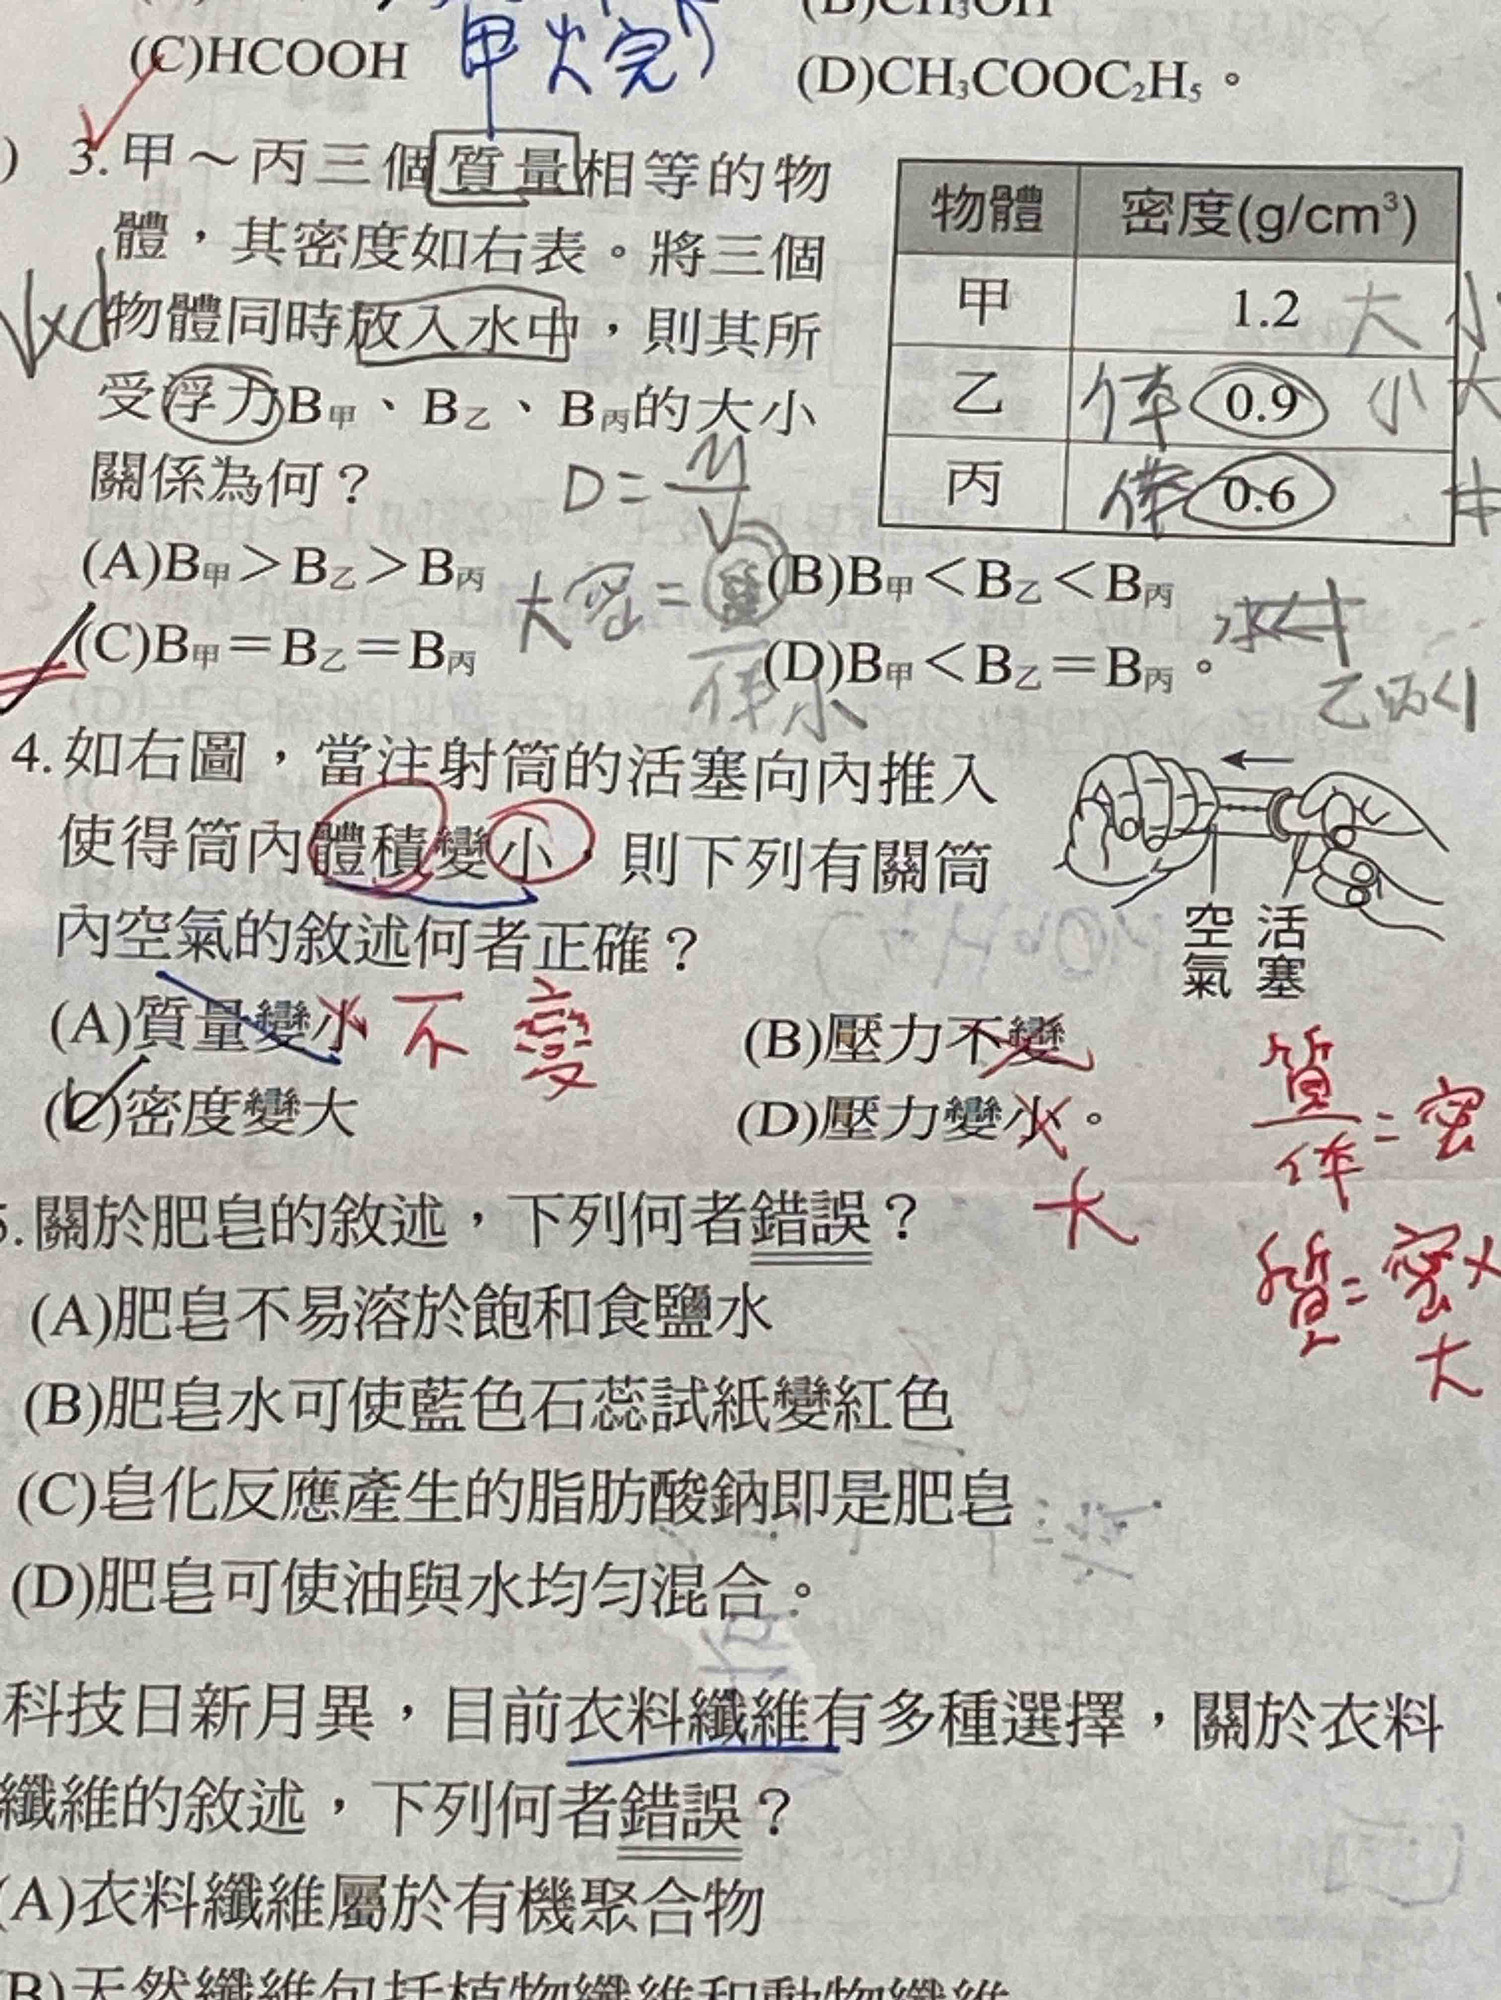 (B)CH₃OH
(C)HCOOH
甲火完
(D)CH₃COOC₂H₅。
) 3.甲～丙三個質量相等的物
體，其密度如右表。將三個
物體同時放入水中，則其所
受浮力B甲、B乙、B丙的大小
關係為何？
D=M/V
物體 密度(g/cm³)
甲 1.2 大 小
乙 体 0.9 小 大
丙 体 0.6
(A)B甲＞B乙＞B丙
大密=質
体小
(B)B甲＜B乙＜B丙
(C)B甲＝B乙＝B丙
(D)B甲＜B乙＝B丙。
乙丙<1
4.如右圖，當注射筒的活塞向內推入
使得筒內體積變小，則下列有關筒
內空氣的敘述何者正確？
空氣
活塞
(A)質量變小 不變
(B)壓力不變
(C)密度變大
(D)壓力變小。
大
質/体=密
質=密×
大
5.關於肥皂的敘述，下列何者錯誤？
(A)肥皂不易溶於飽和食鹽水
(B)肥皂水可使藍色石蕊試紙變紅色
(C)皂化反應產生的脂肪酸鈉即是肥皂
(D)肥皂可使油與水均勻混合。
科技日新月異，目前衣料纖維有多種選擇，關於衣料
纖維的敘述，下列何者錯誤？
(A)衣料纖維屬於有機聚合物
(B)天然纖維包括植物纖維和動物纖維